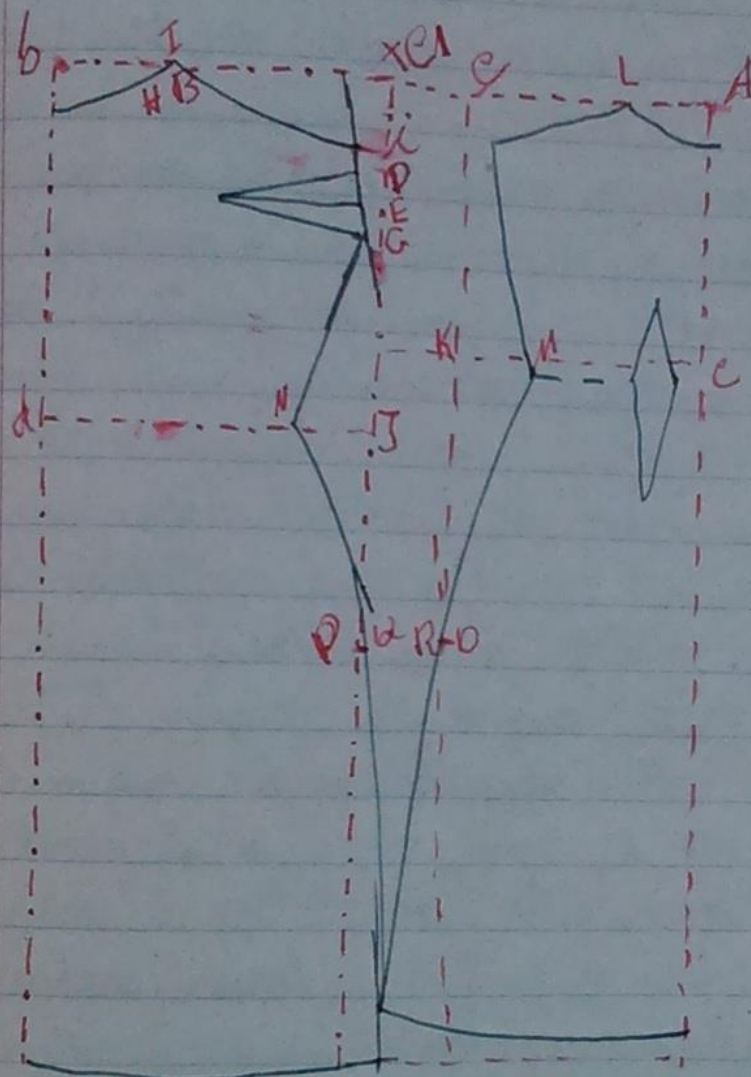 b I XC1 C L A
H B
K
D
E
G
K1 M C
d N J
P Q R O